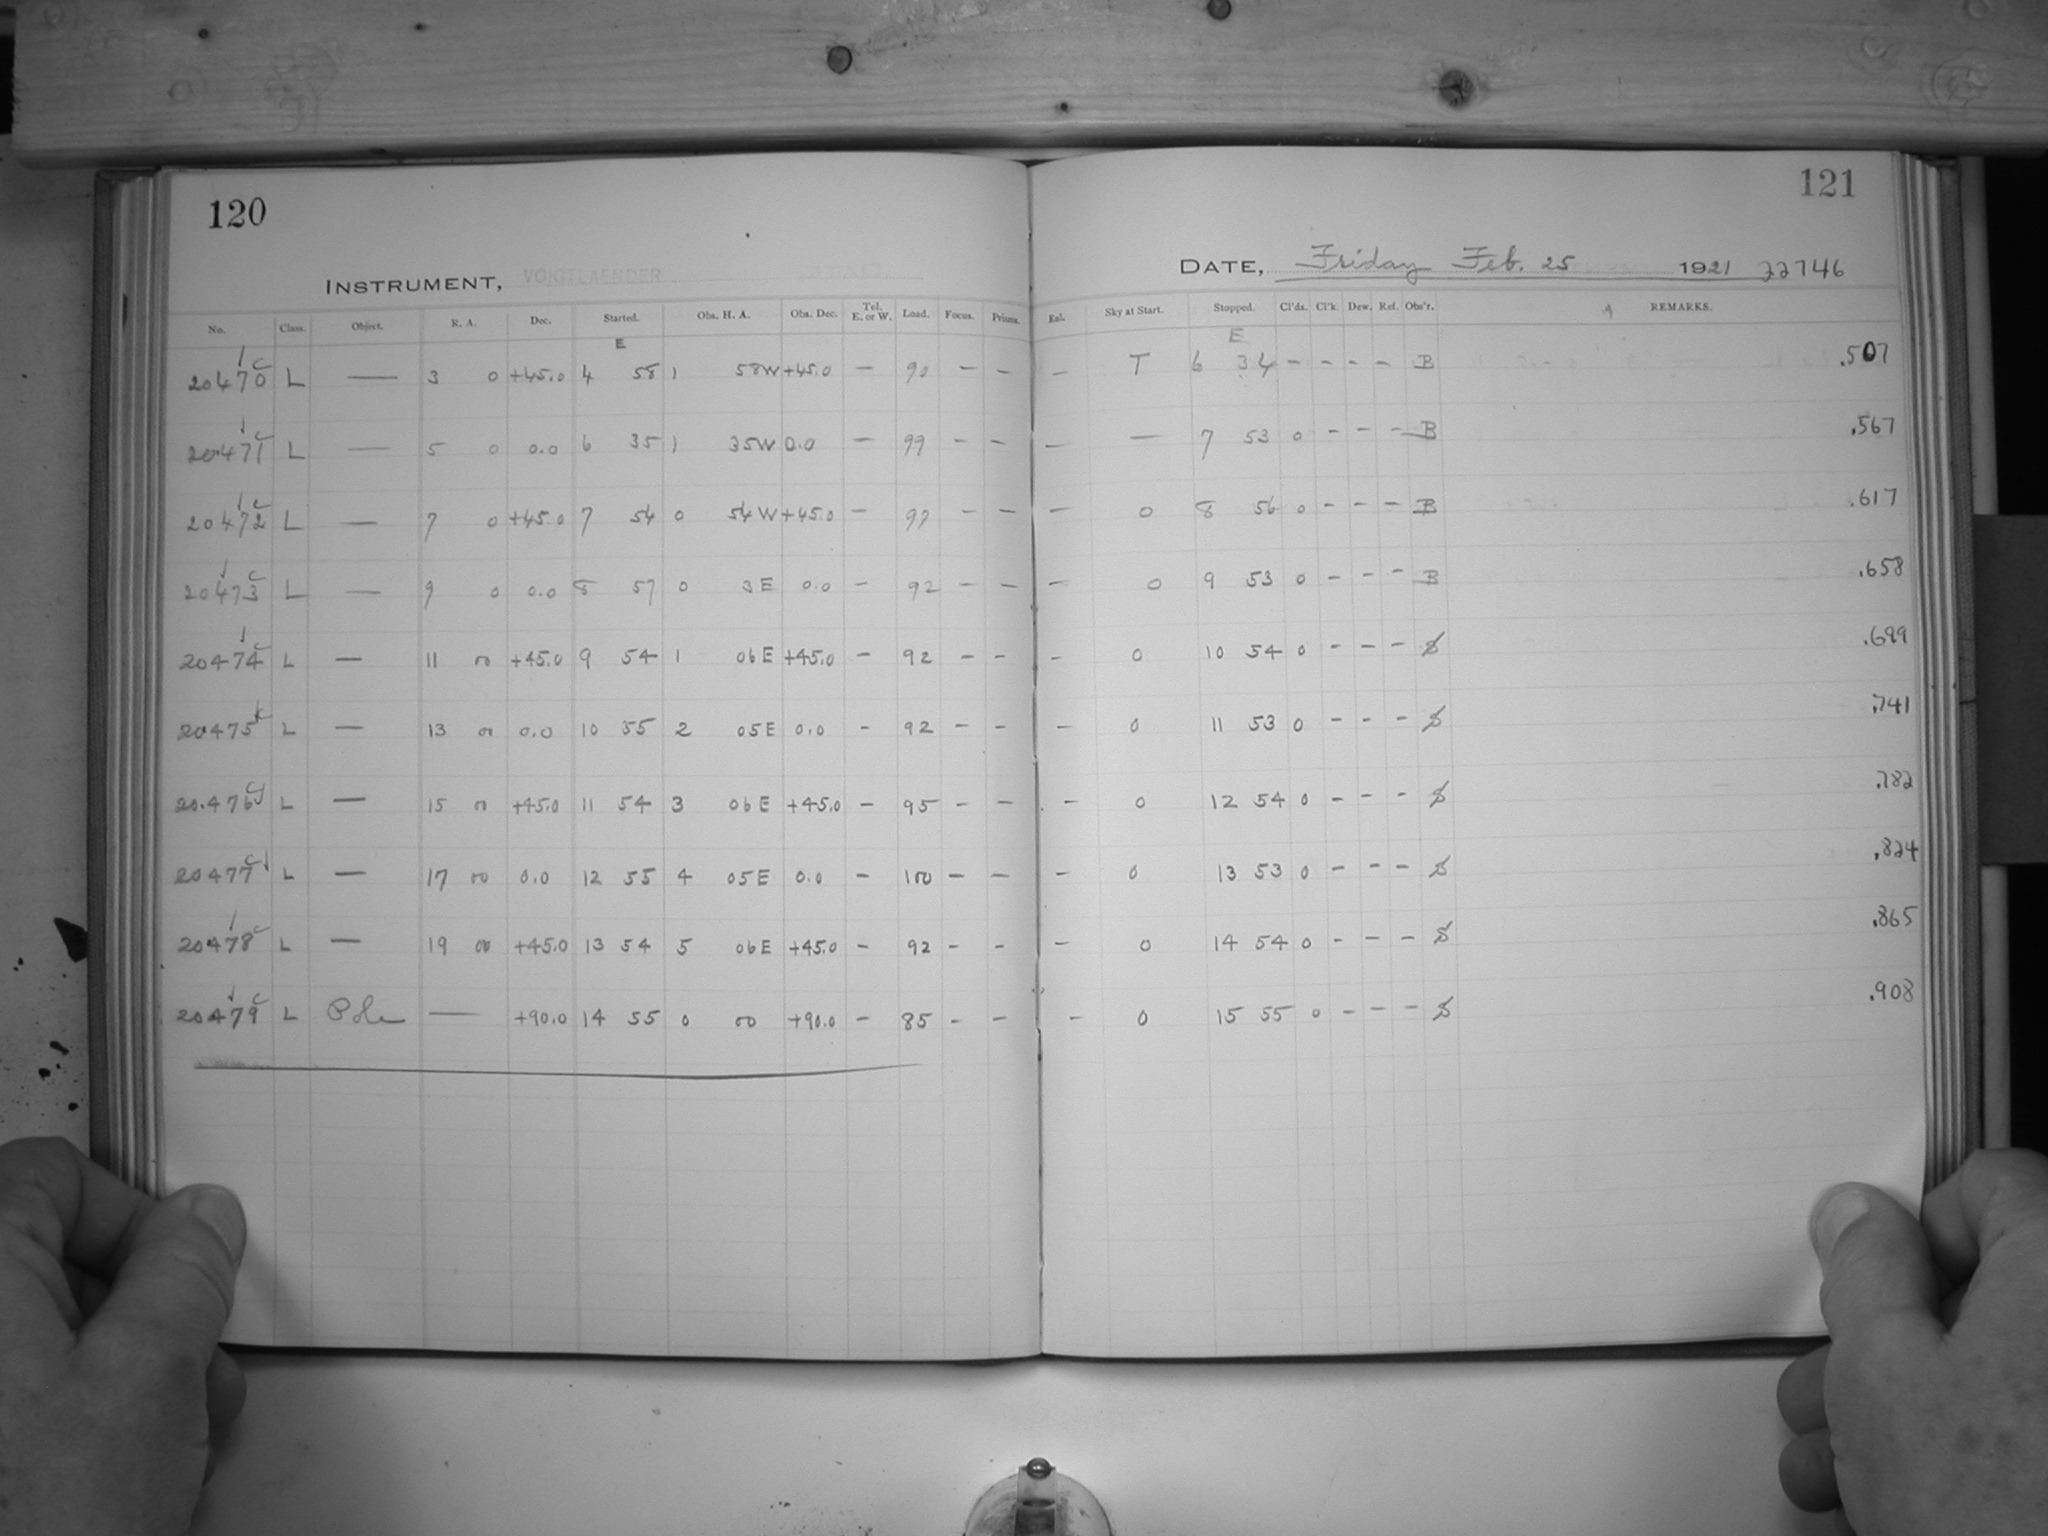 120
INSTRUMENT, VOIGTLAENDER
No. Class. Object. R. A. Dec. Started. Obs. H. A. Obs. Dec. Tel. E. or W. Load. Focus. Prisms.
E
20470 C L — 3 0 +45.0 4 58 1 58 W +45.0 — 90 — —
20471 C L — 5 0 0.0 6 35 1 35 W 0.0 — 99 — —
20472 C L — 7 0 +45.0 7 54 0 54 W +45.0 — 97 — —
20473 C L — 9 0 0.0 8 57 0 3 E 0.0 — 92 — —
20474 C L — 11 00 +45.0 9 54 1 06 E +45.0 — 92 — —
20475 C L — 13 00 0.0 10 55 2 05 E 0.0 — 92 — —
20476 C L — 15 00 +45.0 11 54 3 06 E +45.0 — 95 — —
20477 C L — 17 00 0.0 12 55 4 05 E 0.0 — 100 — —
20478 C L — 19 00 +45.0 13 54 5 06 E +45.0 — 92 — —
20479 C L Pole — +90.0 14 55 0 00 +90.0 — 85 — —
121
DATE, Friday Feb. 25 1921 22746
Enl. Sky at Start. Stopped. Cl'ds. Cl'k. Dew. Ref. Obs'r. REMARKS.
E
— T 6 34 — — — — B .507
— — 7 53 0 — — — B .567
— 0 8 56 0 — — — B .617
— 0 9 53 0 — — — B .658
— 0 10 54 0 — — — S .699
— 0 11 53 0 — — — S .741
— 0 12 54 0 — — — S .782
— 0 13 53 0 — — — S .824
— 0 14 54 0 — — — S .865
— 0 15 55 0 — — — S .908